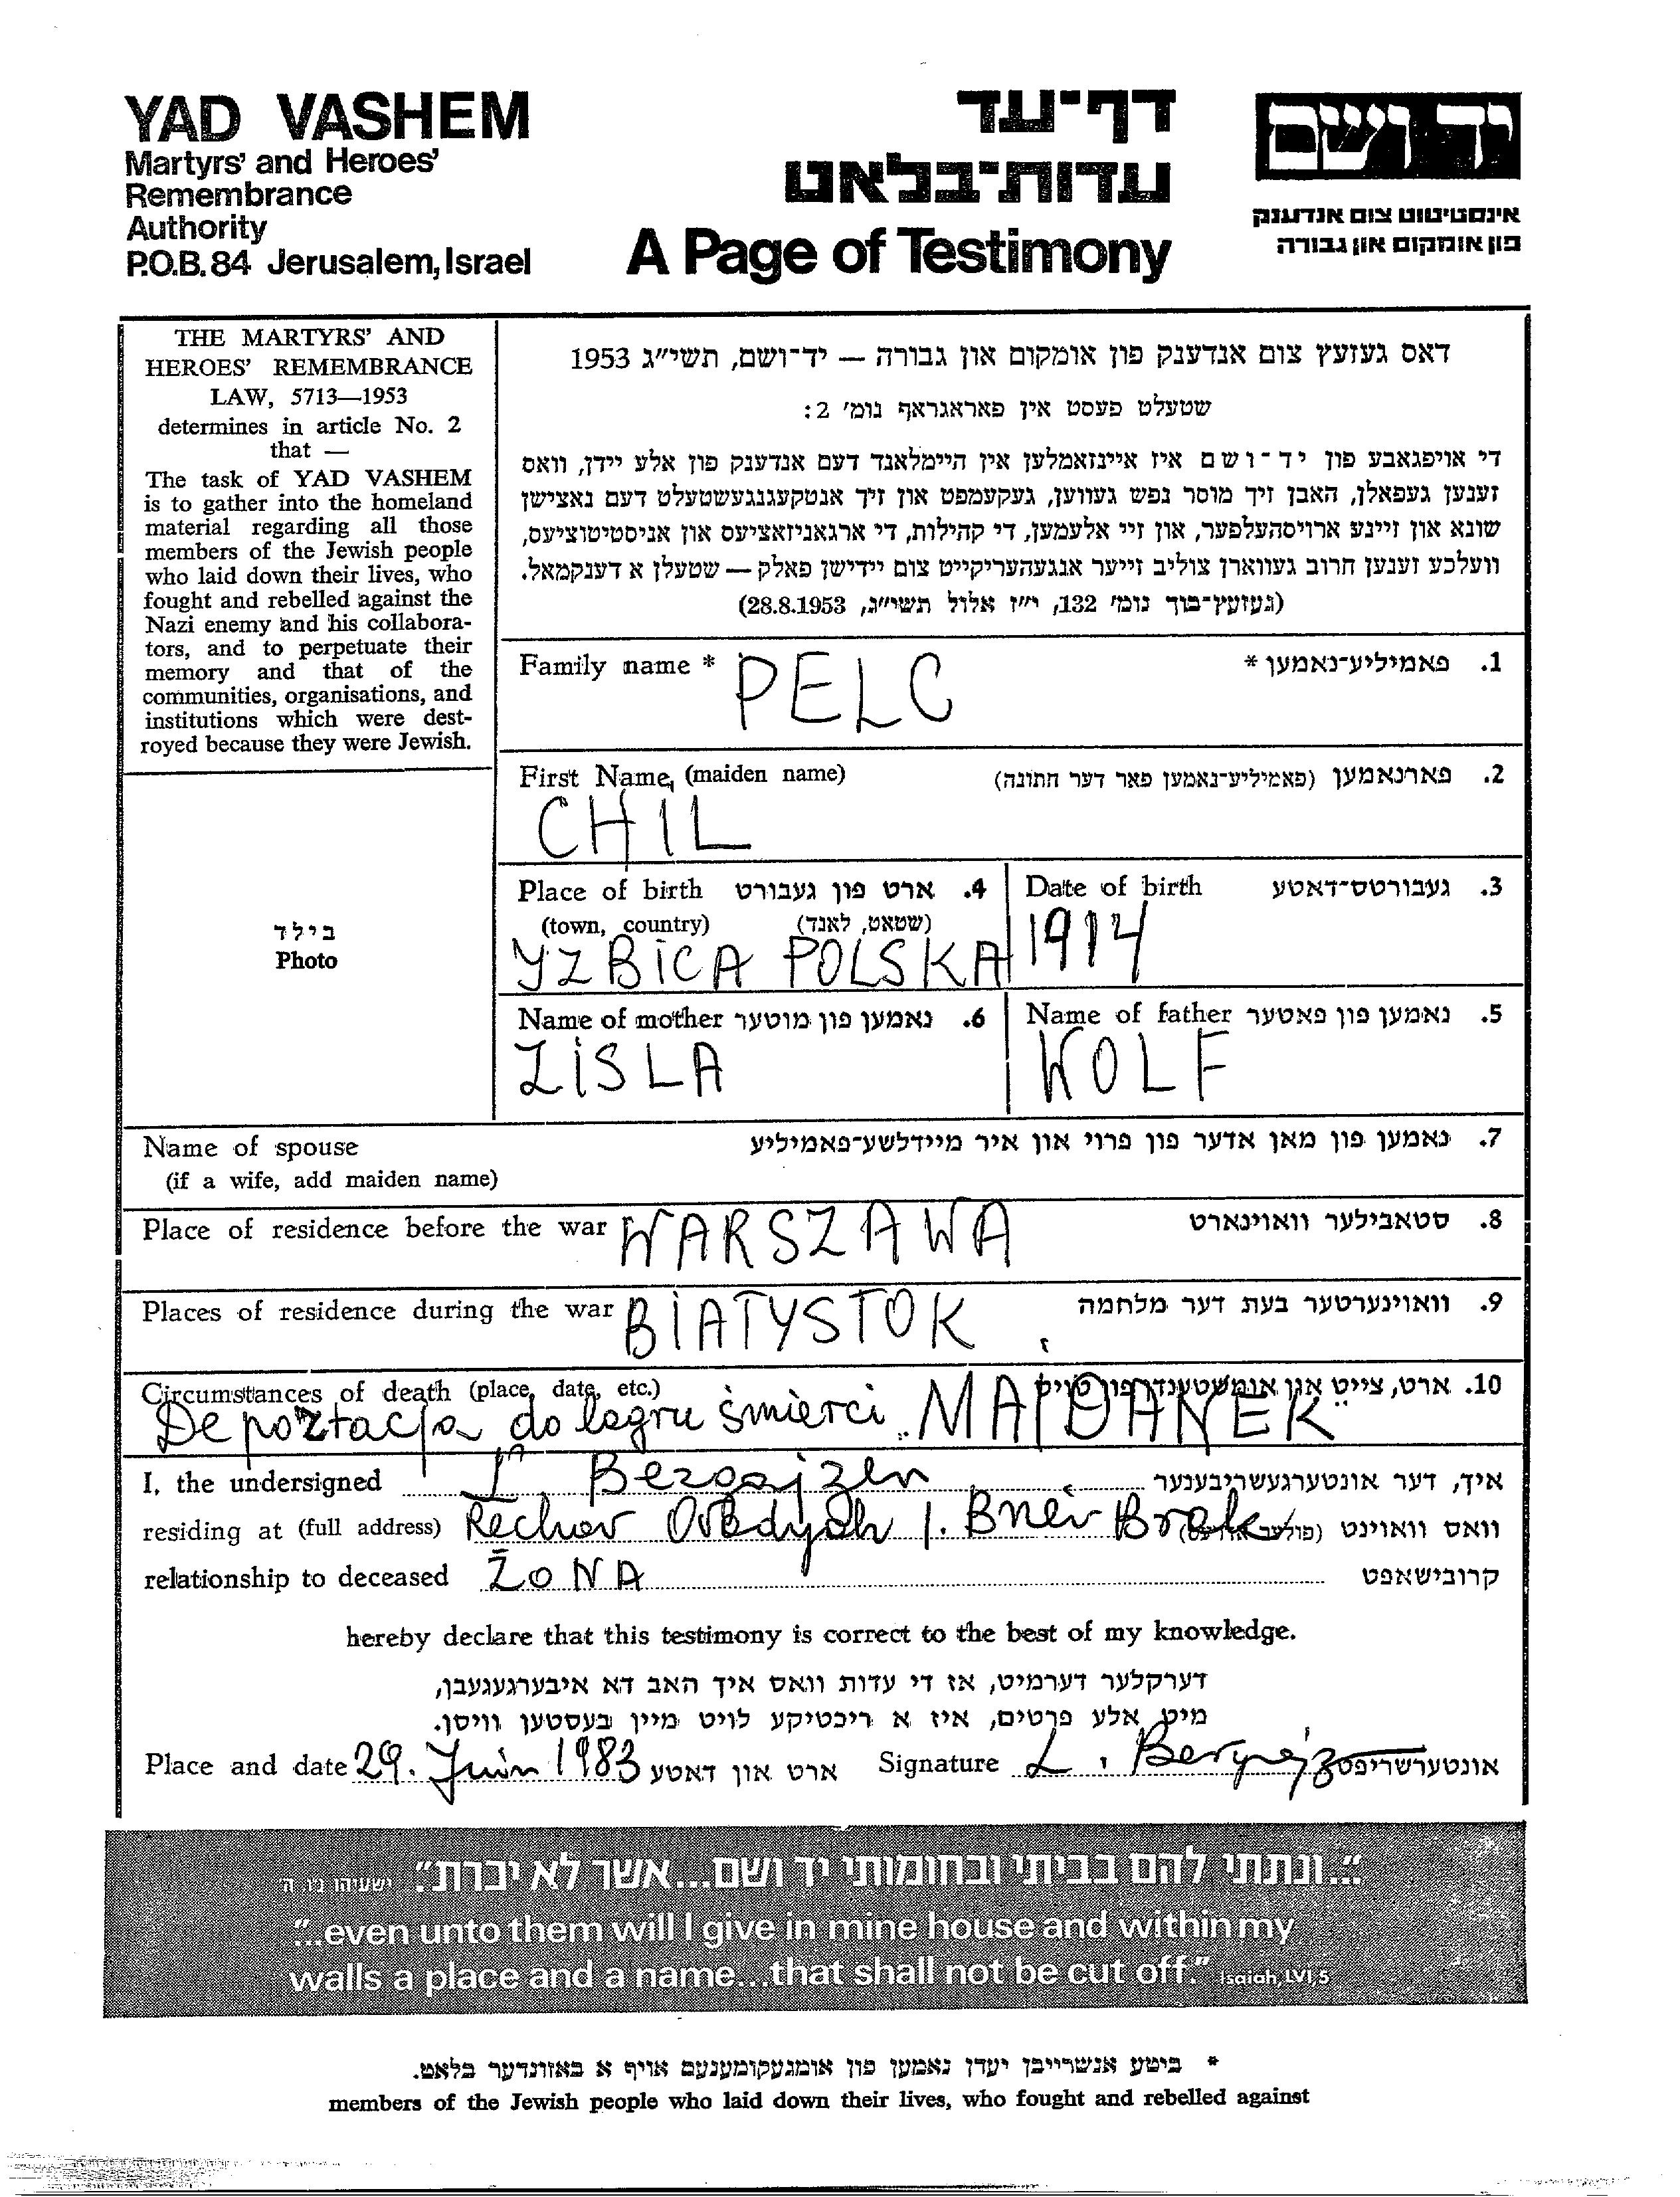 YAD VASHEM
Martyrs' and Heroes'
Remembrance
Authority
P.O.B. 84 Jerusalem, Israel
דף־עד
עדות־בלאט
A Page of Testimony
יד ושם
אינסטיטוט צום אנדענק
פון אומקום און גבורה
THE MARTYRS' AND
HEROES' REMEMBRANCE
LAW, 5713—1953
determines in article No. 2
that —
The task of YAD VASHEM
is to gather into the homeland
material regarding all those
members of the Jewish people
who laid down their lives, who
fought and rebelled against the
Nazi enemy and his collabora-
tors, and to perpetuate their
memory and that of the
communities, organisations, and
institutions which were dest-
royed because they were Jewish.
דאס געזעץ צום אנדענק פון אומקום און גבורה — יד־ושם, תשי״ג 1953
שטעלט פעסט אין פאראגראף נומ׳ 2:
די אויפגאבע פון יד־ושם איז איינזאמלען אין היימלאנד דעם אנדענק פון אלע יידן, וואס
זענען געפאלן, האבן זיך מוסר נפש געווען, געקעמפט און זיך אנטקעגנגעשטעלט דעם נאצישן
שונא און זיינע ארויסהעלפער, און זיי אלעמען, די קהילות, די ארגאניזאציעס און אניסטיטוציעס,
וועלכע זענען חרוב געווארן צוליב זייער אנגעהעריקייט צום יידישן פאלק — שטעלן א דענקמאל.
(געזעץ־בוך נומ׳ 132, י״ז אלול תשי״ג, 28.8.1953)
Family name * PELC פאמיליע־נאמען * .1
First Name, (maiden name) פארנאמען (פאמיליע־נאמען פאר דער חתונה) .2
CHIL
Place of birth ארט פון געבורט .4
(town, country) (שטאט, לאנד)
YZBICA POLSKA
Date of birth געבורטס־דאטע .3
1914
Name of mother נאמען פון מוטער .6
ZISLA
Name of father נאמען פון פאטער .5
WOLF
בילד
Photo
Name of spouse נאמען פון מאן אדער פון פרוי און איר מיידלשע־פאמיליע .7
(if a wife, add maiden name)
Place of residence before the war WARSZAWA סטאבילער וואוינארט .8
Places of residence during the war BIATYSTOK וואוינערטער בעת דער מלחמה .9
Circumstances of death (place, date, etc.) ארט, צייט און אומשטענדן פון טויט .10
Deportacja do lagru śmierci „MAJDANEK"
I, the undersigned L. איך, דער אונטערגעשריבענער
residing at (full address) Rechov 1. Bnei Brak וואס וואוינט
relationship to deceased ŻONA קרובישאפט
hereby declare that this testimony is correct to the best of my knowledge.
דערקלער דערמיט, אז די עדות וואס איך האב דא איבערגעגעבן,
מיט אלע פרטים, איז א ריכטיקע לויט מיין בעסטען וויסן.
Place and date 29. Juin 1983 ארט און דאטע Signature L. אונטערשריפט
"...ונתתי להם בביתי ובחומותי יד ושם...אשר לא יכרת." ישעיהו נ״ו, ה׳
"...even unto them will I give in mine house and within my
walls a place and a name...that shall not be cut off." Isaiah, LVI, 5
* ביטע אנשרייבן יעדן נאמען פון אומגעקומענעם אויף א באזונדער בלאט.
members of the Jewish people who laid down their lives, who fought and rebelled against